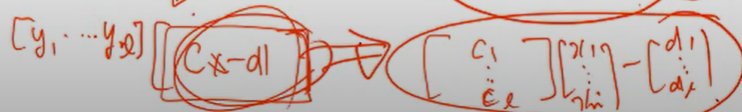 [y₁ ... yₗ] [Cx-d] ⇒ [c₁ ⋮ cₗ] [x₁ ⋮ xₙ] - [d₁ ⋮ dₗ]